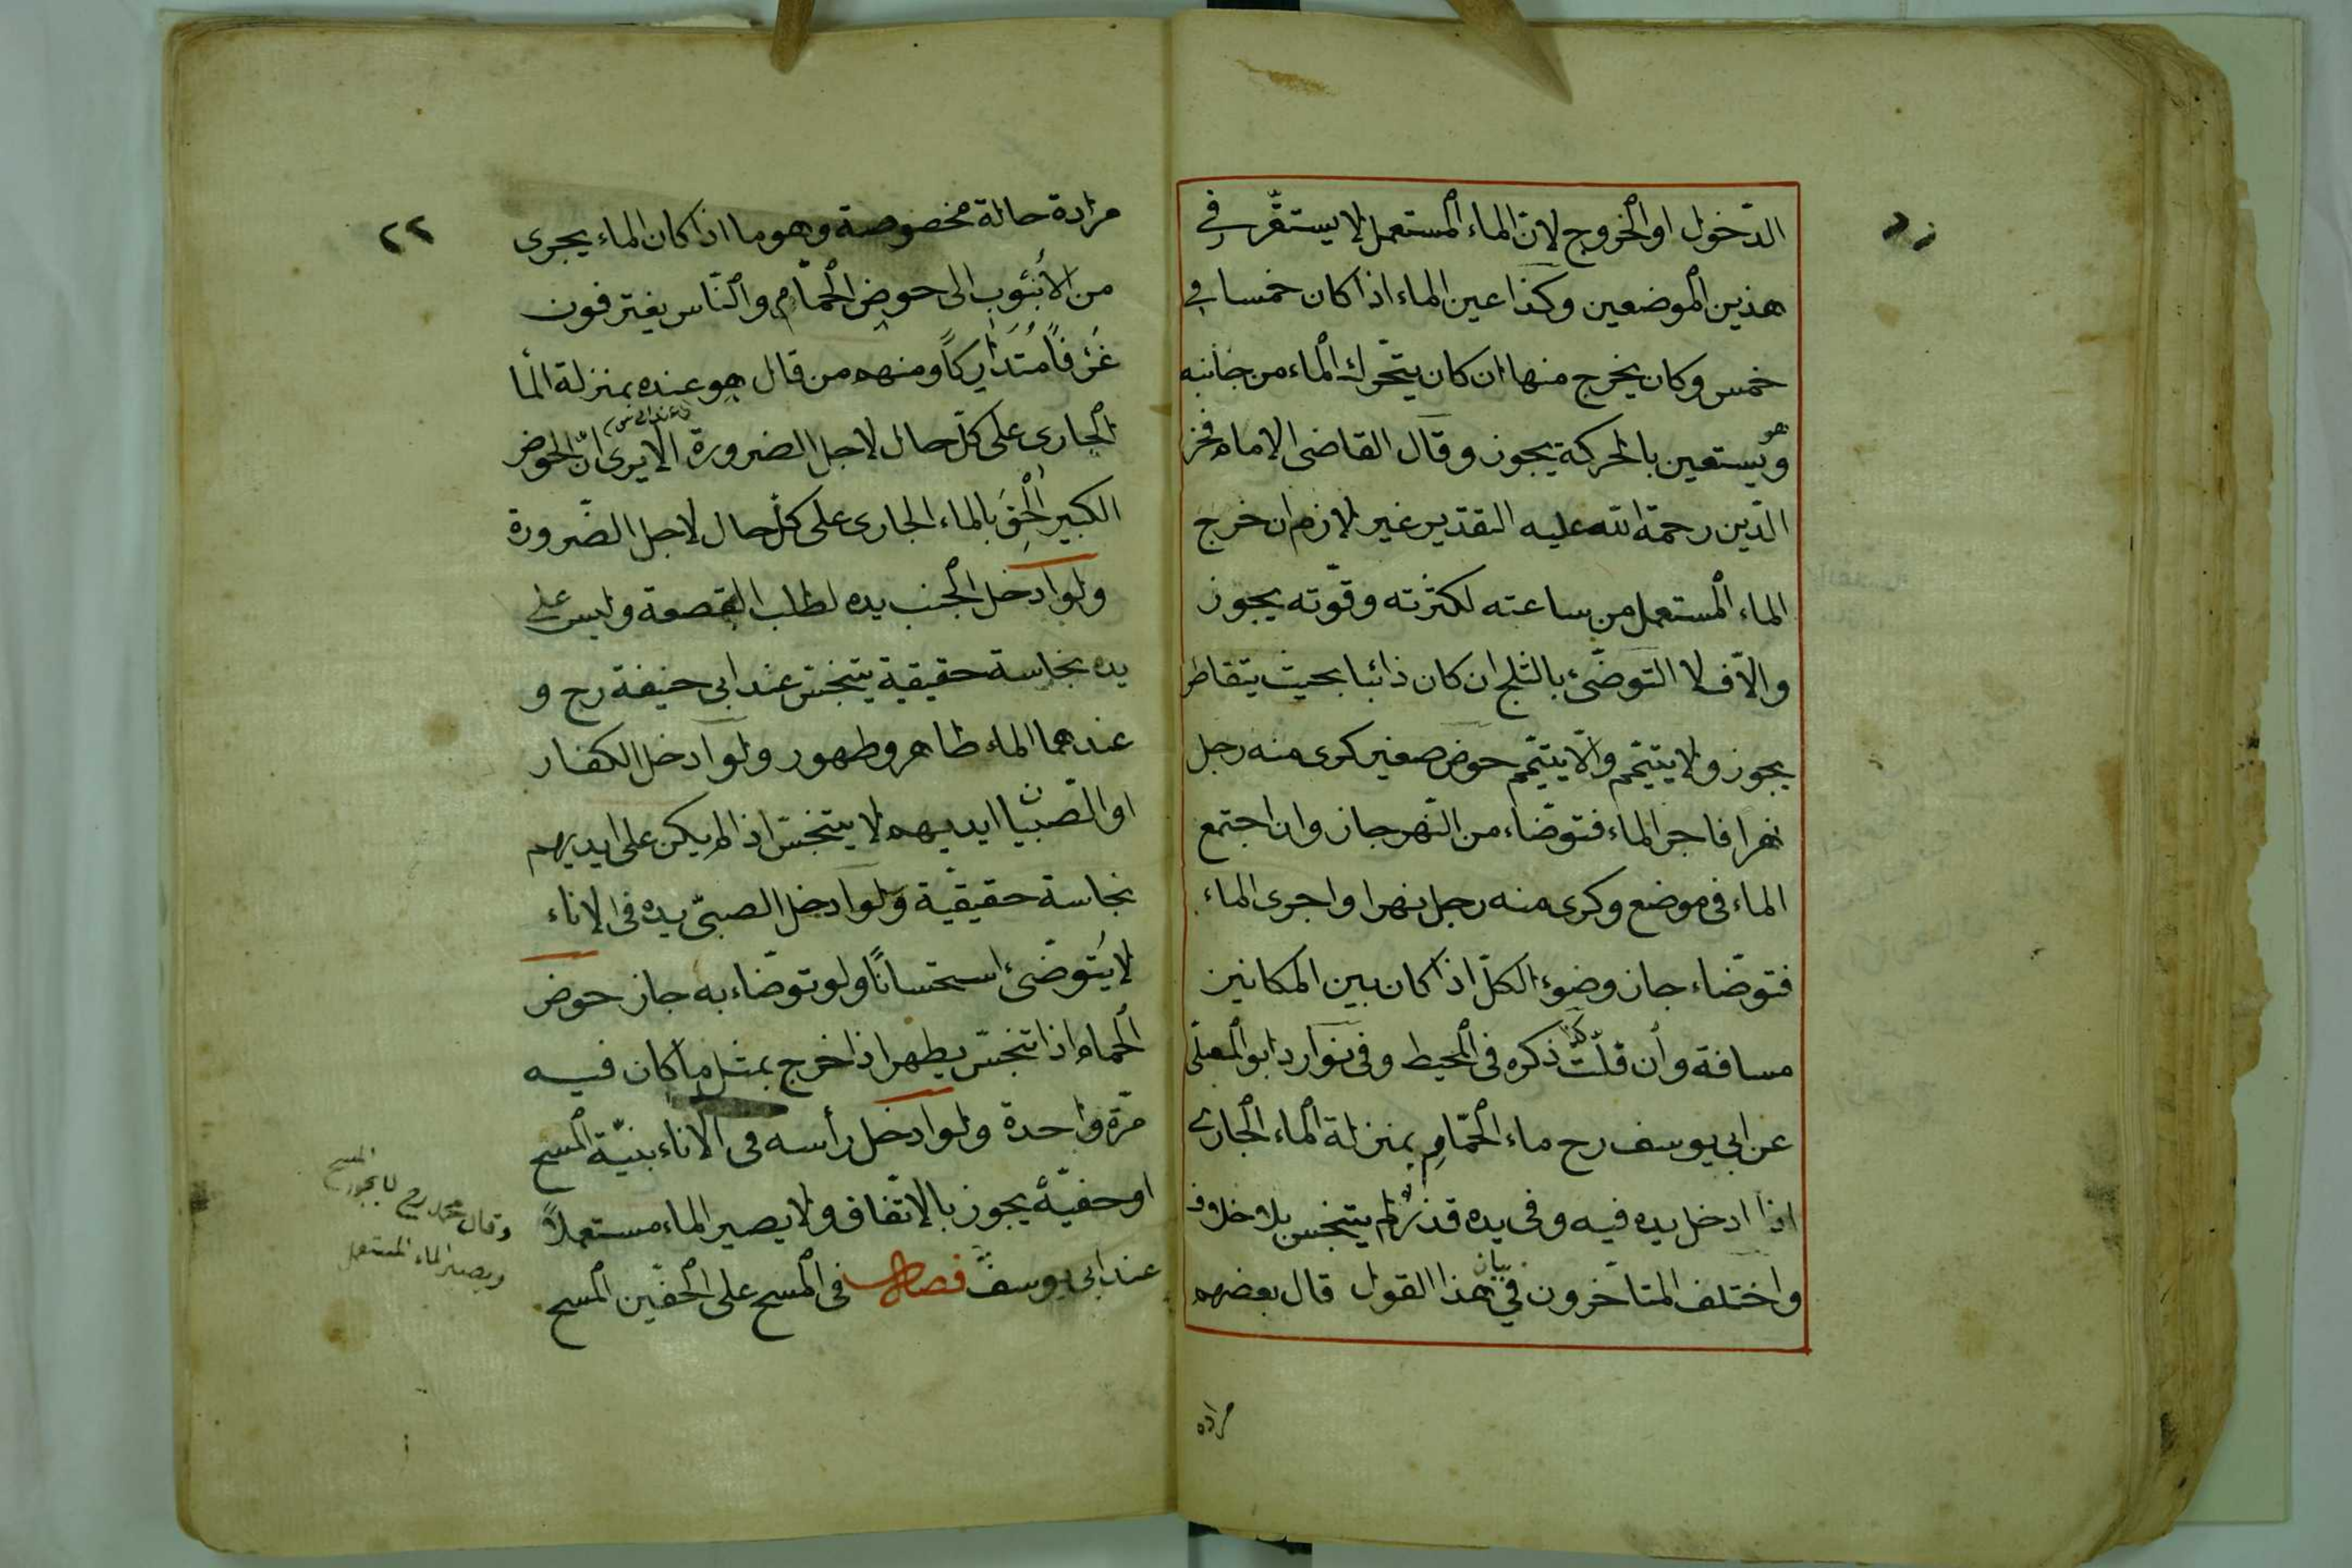 الدّخول او الخروج لانّ الماء المستعمل لا يستقرّ في
هذين الموضعين وكذا عين الماء اذا كان خمسا في
خمس وكان يخرج منها ان كان يتحّرك الماء من جانبه
هو
ويستعين بالحركة يجوز وقال القاضى الامام فخر
الدّين رحمة الله عليه التقدير غير لازم ان خرج
الماء المستعمل من ساعته لكثرته وقوّته يجوز
والاّ فلا التوضّئ بالثلج ان كان ذائبا بحيث يتقاطر
يجوز ولا يتيمّم والاّ يتيمّم حوض صغير كرى منه رجل
نهرا فاجرى الماء فتوضّاء من النّهر جاز وان اجتمع
الماء فى موضع وكرى منه رجل نهرا واجرى الماء
فتوضّاء جاز وضوء الكلّ اذا كان بين المكانين
مسافة وان قلّت ذكره فى المحيط وفى نوارد ابو المعلّى
عن ابى يوسف رح ماء الحمّام بمنزلة الماء الجارى
اذا ادخل يده فيه وفى يده قذر لم يتنجس بلا خلاف
بيان
واختلف المتاخّرون في هذا القول قال بعضهم
مراده
٢٢
مرادة حالة مخصوصة وهو ما اذا كان الماء يجرى
من الأنبُوب الى حوض الحمّام والنّاس يغترفون
غَرْفاً مُتَدَارِكاً ومنهم من قال هو عنده بمنزلة الما
الجارى على كلّ حال لاجل الضرورة الا يرى انّ الحوض
الكبير اُلْحِقَ بالماء الجارى على كلّ حال لاجل الضّرورة
ولو ادخل الجنب يده لطلب القصعة وليس على
يده نجاسة حقيقية يتنجّس عند ابى حنيفة رح و
عندهما الماء طاهر وطهور ولو ادخل الكفار
او الصّبيان ايديهم لا يتنجّس اذا لم يكن على ايديهم
نجاسة حقيقيّة ولو ادخل الصبىّ يده فى الاناء
لا يَتَوضّئ استحسانًا ولو توضّاء به جاز حوض
الحمام اذا تنجّس يطهر اذا خرج بمثل ما كان فيه
مرّة واحدة ولو ادخل رأسه فى الاناء بنيّة المسح
او خفيّة يجوز بالاتّفاق ولا يصير الماء مستعملاً
عند ابى يوسف فصل فى المسح على الخفّين المسح
وقال محمد رح لا يجوز المسح
ويصير الماء المستعمل